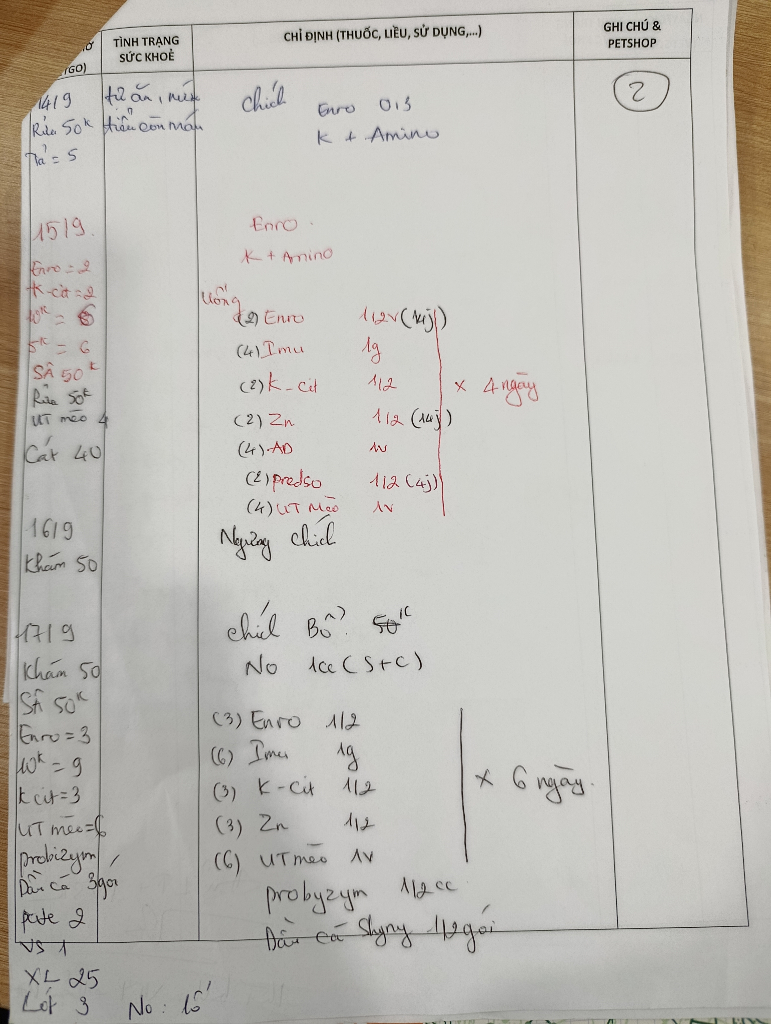 TÌNH TRẠNG SỨC KHOẺ
CHỈ ĐỊNH (THUỐC, LIỀU, SỬ DỤNG,...)
GHI CHÚ & PETSHOP
GO)
14/9 tự ăn,
Rửa 50K tiểu còn máu
Tả = 5
chích Enro 0,3
K + Amino
2
15/9
Enro = 2
K-cit = 2
10K = 6
5K = 6
SÂ 50K
Rửa 50K
UT mèo 4
Cát 40
Enro
K + Amino
Uống
(2) Enro 1/2v (14j)
(4) Imu 1g
(2) K-cit 1/2
(2) Zn 1/2 (14j)
(4) AD 1v
(2) predso 1/2 (4j)
(4) UT Mèo 1v
x 4 ngày
16/9
Khám 50
Ngưng chích
17/9
Khám 50
SÂ 50K
Enro = 3
10K = 9
K cit = 3
UT mèo = 6
probizym
Dầu cá 3 gói
pate 2
VS 1
XL 25
Lót 3
chích Bổ 50K
No 1cc (S+C)
(3) Enro 1/2
(6) Imu 1g
(3) K-Cit 1/2
(3) Zn 1/2
(6) UT mèo 1v
x 6 ngày.
probyzym 1/2 cc
Dầu cá Shyny 1/2 gói
No: